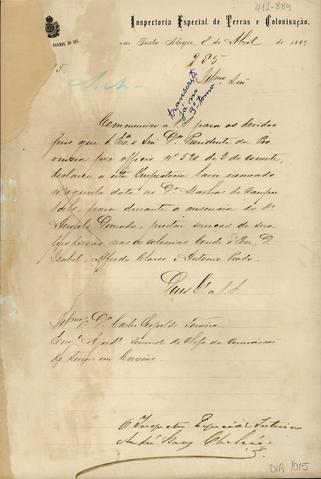 413-889
Inspectoria Especial de Terras e Colonisação,
em Porto Alegre, 8 de Abril de 1889
285
transcripto já no 3º tomo
Illmo Snr
Communico a V. S. para os devidos
fins que S. Exª o Snr Dr Presidente da Pro
vincia por officio nº 520 de 2 do corrente,
declarou a esta Inspectoria haver nomeado
n'aquella data ao Dr
para durante a ausencia do Dr
prestar serviços de sua
profissão nas colonias Conde d'Eu, D.
Isabel, Alfredo Chaves e Antonio Prado.
Deus Ge a V. S.
Illmo Snr Dr Carlos Leopoldo
Engº Ajudte servindo de Chefe da Commissão
de Terras em Caxias
O Inspector Especial Interino
DIR 1015